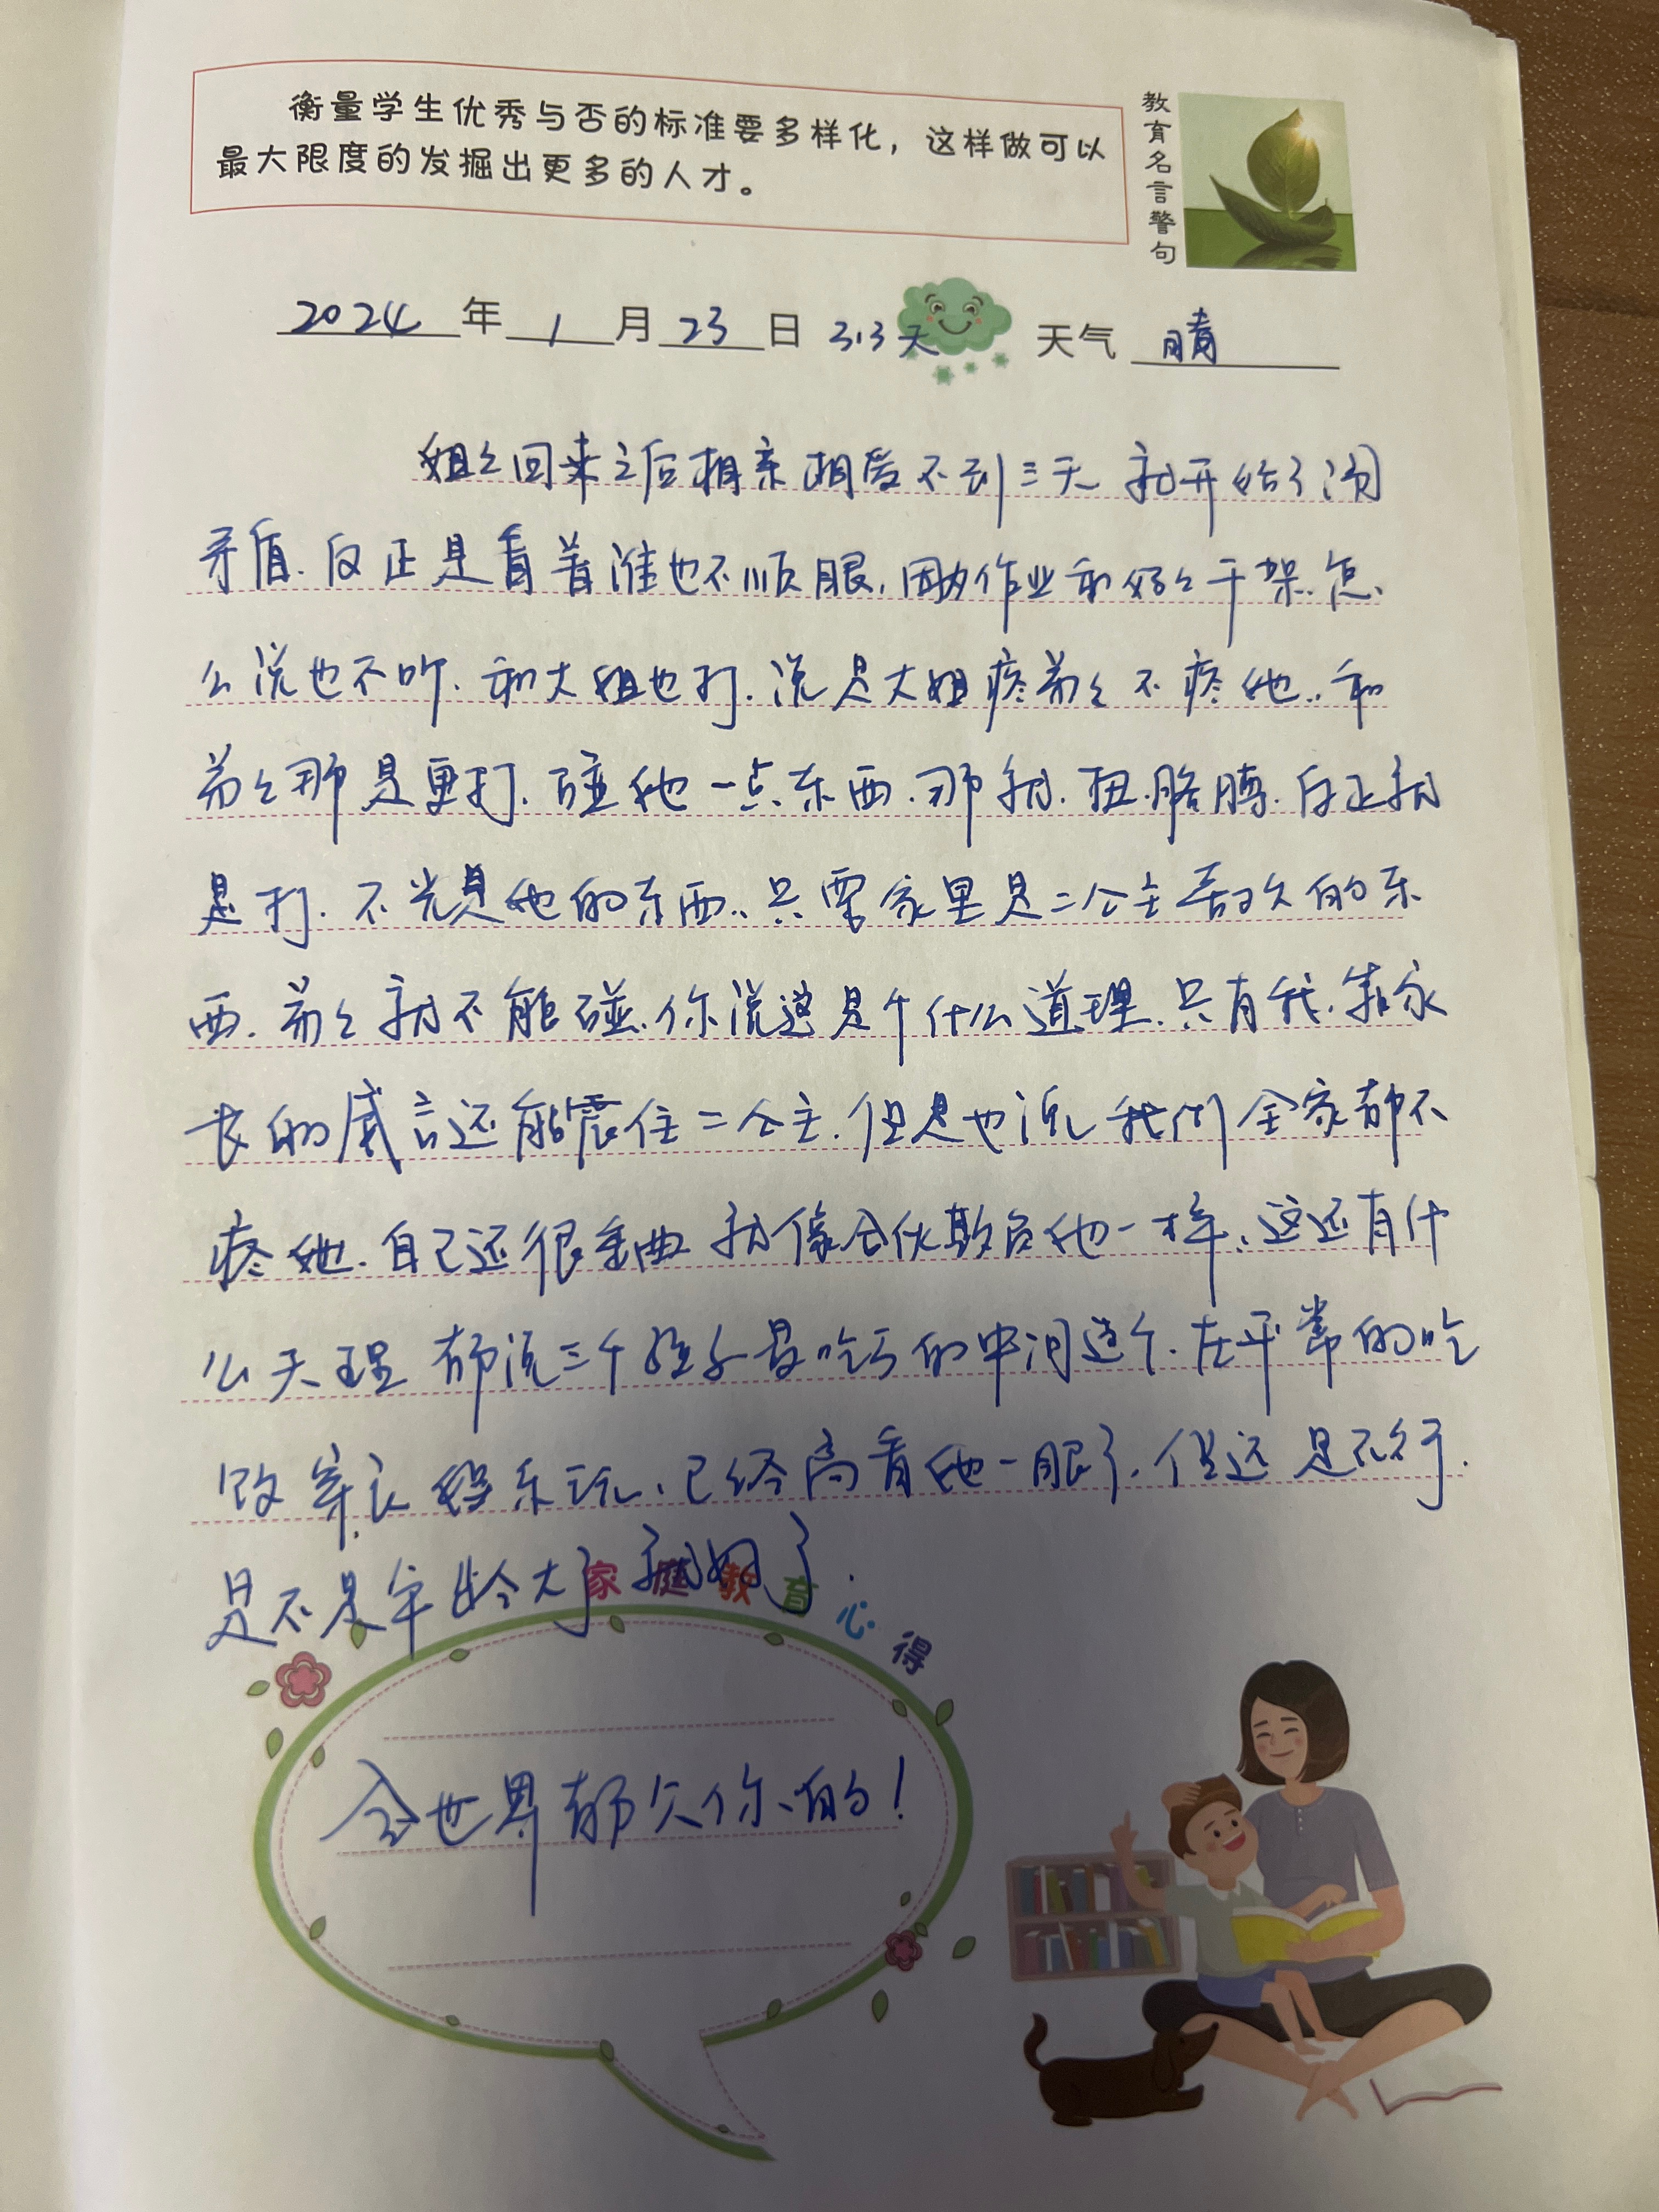 衡量学生优秀与否的标准要多样化，这样做可以
最大限度的发掘出更多的人才。
教育名言警句
2024年1月23日 313天 天气 晴
姐々回来之后相亲相爱不到三天 就开始了闹
矛盾.反正是看着谁也不顺眼.因为作业和妈々干架.怎
么说也不听.和大姐也打.说是大姐疼弟々不疼她..和
弟々那是更打.碰她一点东西.那就.扭.胳膊.反正就
是打.不光是她的东西..只要家里是二公主喜欢的东
西.弟々就不能碰.你说这是个什么道理.只有我.靠家
长的威言还能震住二公主.但是也说我们全家都不
疼她.自己还很委曲 就像合伙欺负她一样.这还有什
么天理 都说三个孩子最吃亏的中间这个.在平常的吃
穿 娱乐玩.已经高看她一眼了.但还是不行.
是不是年龄大了就好了.
家庭教育心得
全世界都欠你的！